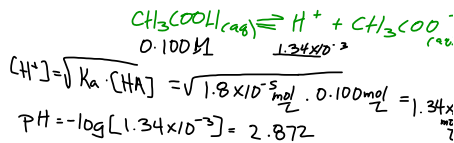 CH₃COOH(aq) ⇌ H⁺ + CH₃COO⁻(aq
0.100M 1.34x10⁻³
[H⁺]=√Ka·[HA] = √1.8x10⁻⁵ mol/L · 0.100 mol/L = 1.34x mo/L
pH=-log[1.34x10⁻³] = 2.872